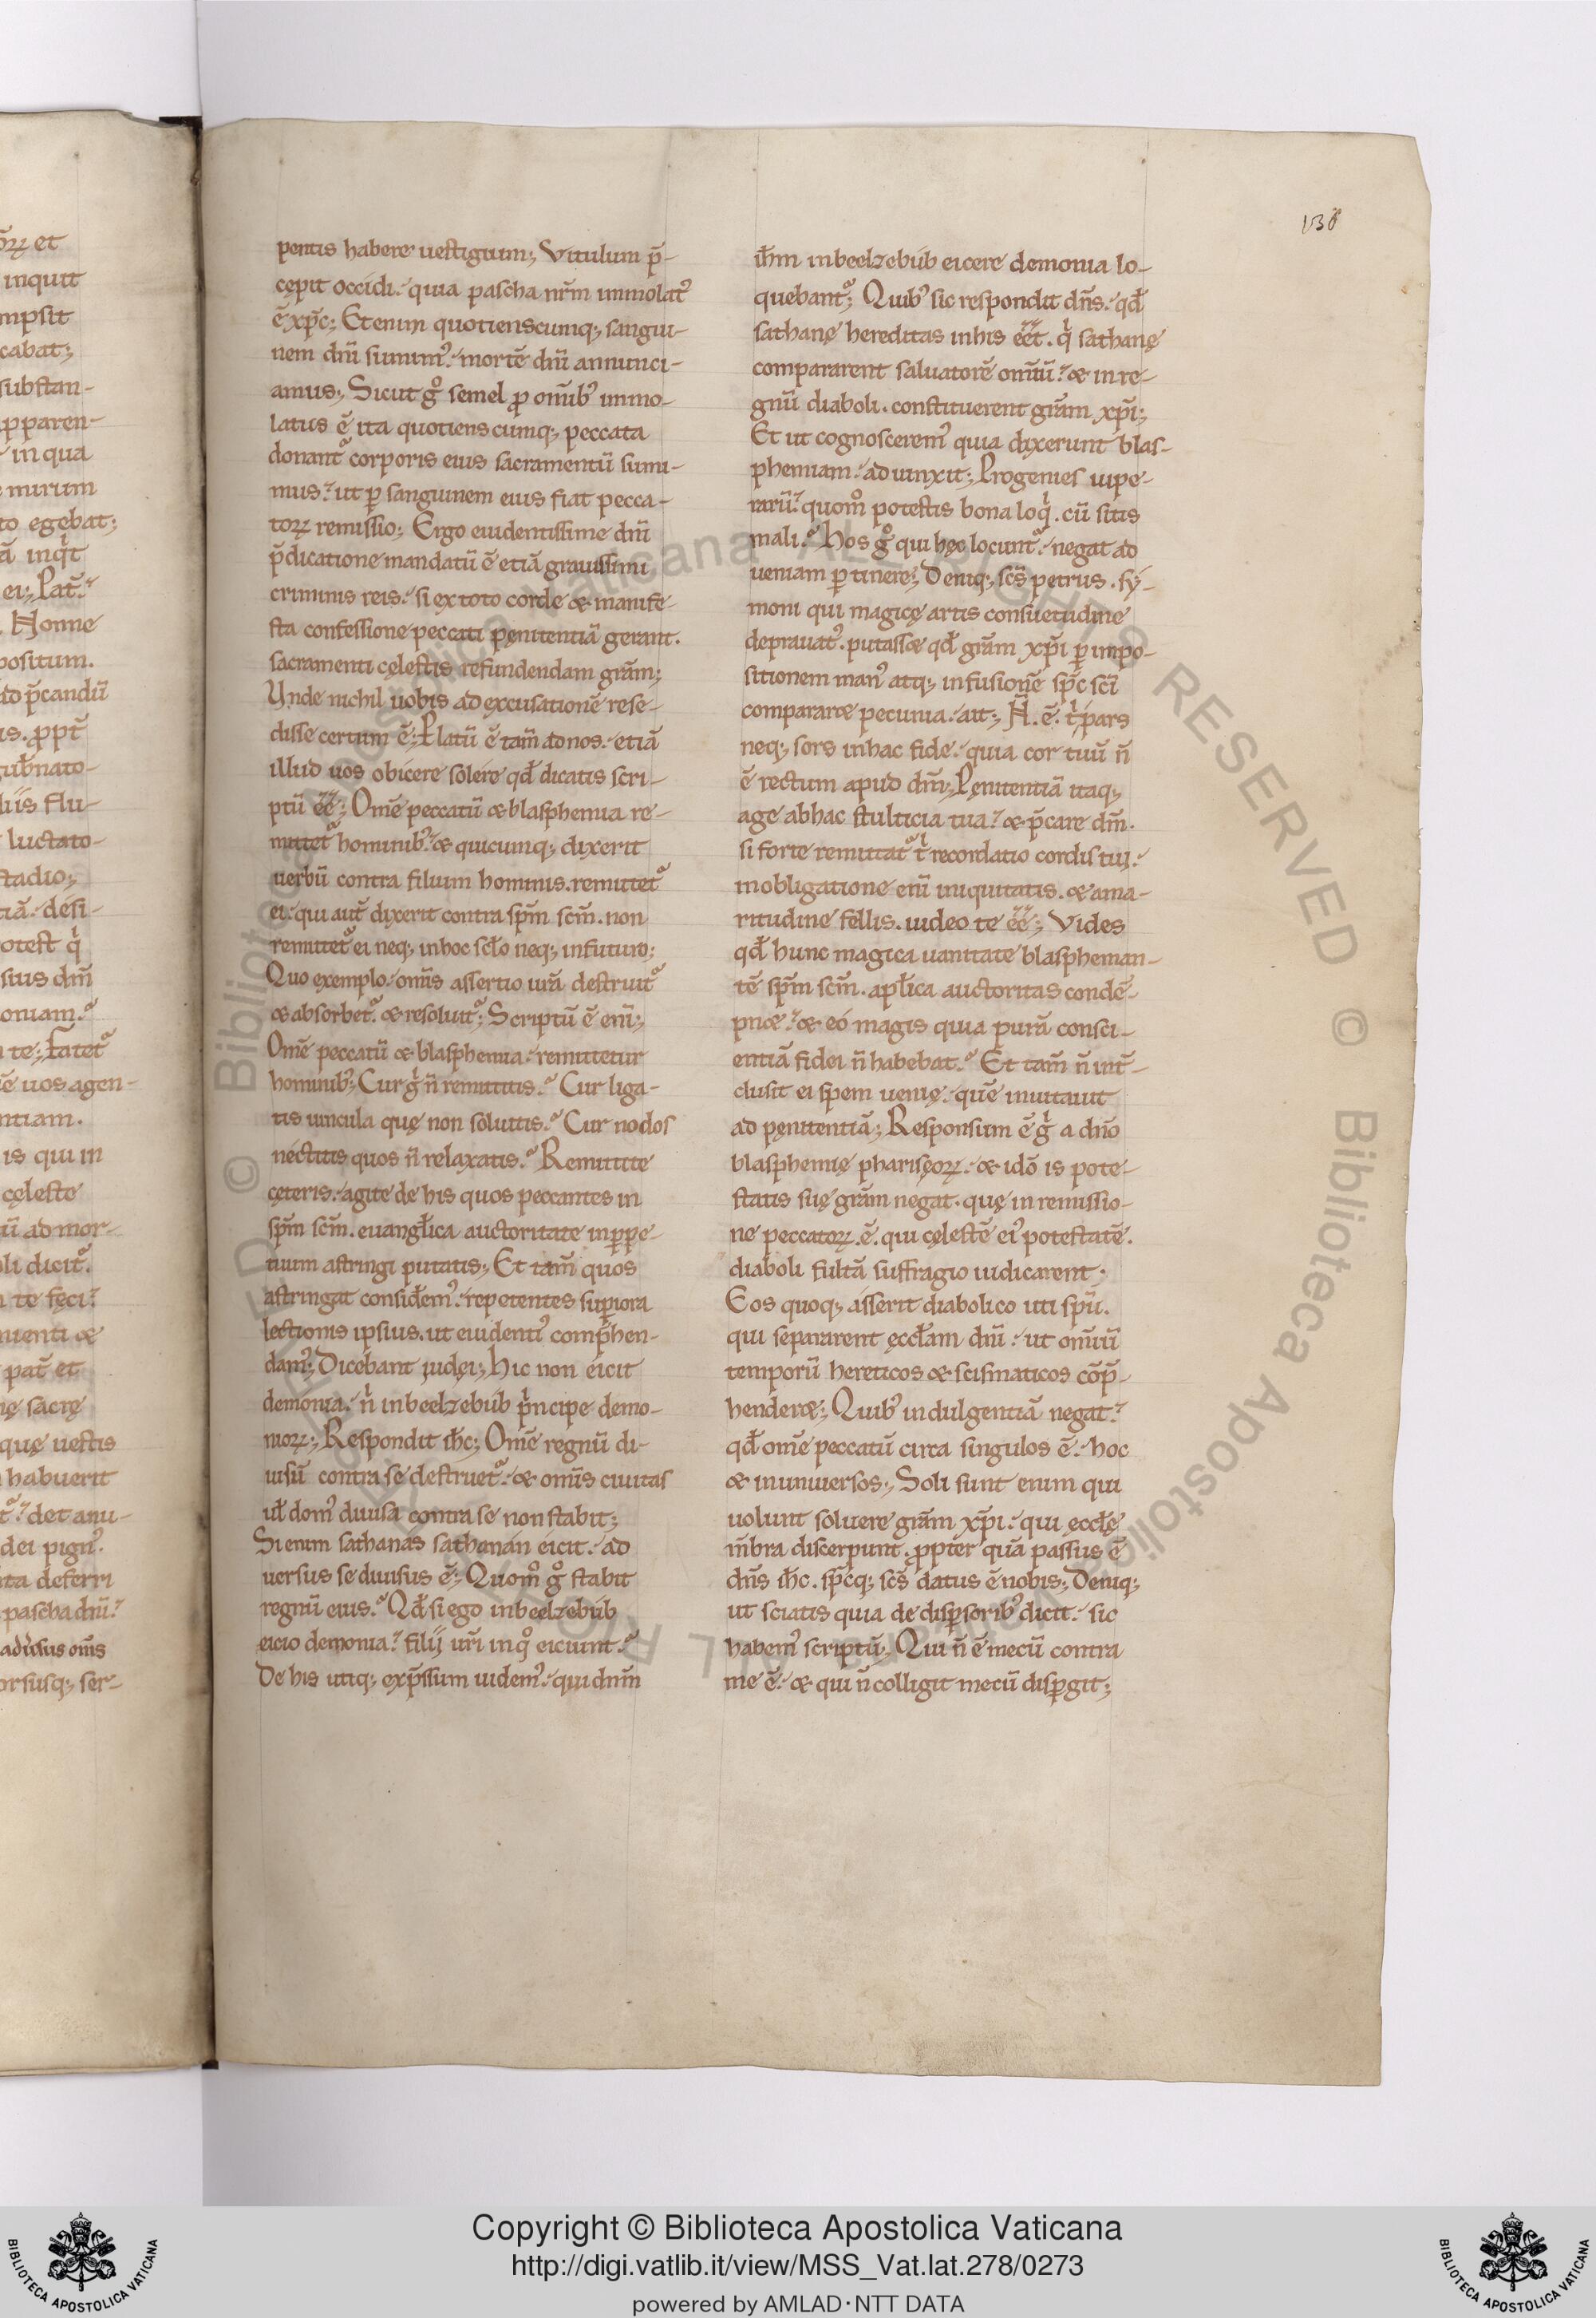 138
pentis habere uestigium; Vitulum p̄-
cępit occidi. quia pascha nr̄m immolat᷒
ē xp̄c; Etenim quotienscumq; sangui-
nem dn̄i sumim᷒. mortē dn̄i annunci-
amus; Sicut gͦ semel ꝓ om̄ib᷒ immo-
latus ē ita quotienscumq; peccata
donant᷒ corporis eius sacramentū sumi-
mus. ut ꝑ sanguinem eius fiat pecca-
toꝝ remissio; Ergo euidentissime dn̄i
p̄dicatione mandatū ē etiā grauissimi
criminis reis. si ex toto corde & manife-
sta confessione peccati pęnitentiā gerant.
sacramenti cęlestis refundendam gr̄am;
Vnde nichil uobis ad excusationē rese-
disse certum ē; Elatū ē tam̄ ad nos. etiā
illud uos obicere solere qđ dicatis scri-
ptū eē; Om̄e peccatū & blasphemia re-
mittet᷒ hominib᷒. & quicumq; dixerit
uerbū contra filium hominis. remittet᷒
ei. qui aut̄ dixerit contra sp̄m sc̄m. non
remittet᷒ ei neq; in hoc sc̄lo neq; in futuro;
Quo exemplo. om̄is assertio ur̄a destruit᷒
& absorbet᷒. & resoluit᷒; Scriptū ē eni̅;
Om̄e peccatū & blasphemia. remittetur
hominib᷒; Cur gͥ n̄ remittitis. Cur liga-
tis uincula quę non soluitis. Cur nodos
nectitis quos n̄ relaxatis. Remittite
cęteris. agite de his quos peccantes in
sp̄m sc̄m. euangl̄ica auctoritate in ꝑpe-
tuum astringi putatis; Et tam̄ quos
astringat consid̄em᷒. repetentes supiora
lectionis ipsius. ut euidenti᷒ comp̄hen-
dam᷒; Dicebant iudęi; Hic non eicit
demonia. nͥ in beelzebub pͥncipe demo-
nioꝝ; Respondit ih̄c; Om̄e regnū di-
uisū contra se destruet᷒. & om̄is ciuitas
ul̄ dom᷒ diuisa contra se non stabit;
Si enim sathanas sathanan eicit. ad
uersus se diuisus ē; Quomͦ gͦ stabit
regnū eius. Qđ si ego in beelzebub
eicio demonia. filij ur̄i in qͦ eiciunt.
De his utiq; exp̄ssum uidem᷒. qui dn̄m
ih̄m in beelzebub eicere demonia lo-
quebant᷒; Quib᷒ sic respondit dn̄s. qđ
sathanę hereditas in his eēt. qͥ sathanę
compararent saluatorē om̄iū. & in re-
gnū diaboli. constituerent gr̄am xp̄i;
Et ut cognoscerem᷒ quia dixerunt blas-
phemiam. adiunxit; Progenies uipe-
rarū. quomͦ potestis bona loqͥ. cū sitis
mali. Hos gͦ qui hęc locunt᷒. negat ad
ueniam ꝑtinere; Deniq; sc̄s petrus. sy-
moni qui magicę artis consuetudine
deprauat᷒. putass& qđ gr̄am xp̄i ꝑ impo-
sitionem man᷒ atq; infusionē sp̄c sc̄i
comparar& pecunia. ait; N̄. ē. tͥ pars
neq; sors in hac fide. quia cor tuū n̄
ē rectum apud dm̄; Pęnitentiā itaq;
age ab hac stulticia tua. & p̄care dm̄.
si forte remittat᷒ tͥ recordatio cordis tui.
in obligatione eni̅ iniquitatis. & ama-
ritudine fellis. uideo te eē; Vides
qđ hunc magica uanitate blaspheman-
tē sp̄m sc̄m. apl̄ica auctoritas condē-
pn&. & eó magis quia purā consci-
entiā fidei n̄ habebat. Et tam̄ n̄ int̄-
clusit ei spem uenię. quē inuitauit
ad pęnitentiā; Responsum ē gͥ a dn̄o
blasphemię pharisęoꝝ. & idō is pote-
statis suę gr̄am negat. quę in remissio-
ne peccatoꝝ. ē. qui cęlestē ei᷒ potestatē.
diaboli fultā suffragio iudicarent;
Eos quoq; asserit diabolico uti sp̄ū.
qui separarent ęccl̄am dn̄i. ut om̄iū
temporū hereticos & scismaticos cōp̄-
hender&; Quib᷒ indulgentiā negat.
qđ om̄e peccatū circa singulos ē. hoc
& in uniuersos; Soli sunt enim qui
uolunt soluere gr̄am xp̄i. qui ęccl̄ę
m̄bra discerpunt. ꝓpter quā passus ē
dn̄s ih̄c. sp̄cq; sc̄s datus ē nobis; Deniq;
ut sciatis quia de disꝑsorib᷒ dicit. sic
habem᷒ scriptū; Qui n̄ ē mecū contra
me ē. & qui n̄ colligit mecū disꝑgit;
Copyright © Biblioteca Apostolica Vaticana
http://digi.vatlib.it/view/MSS_Vat.lat.278/0273
powered by AMLAD·NTT DATA
BIBLIOTECA APOSTOLICA VATICANA
BIBLIOTECA APOSTOLICA VATICANA